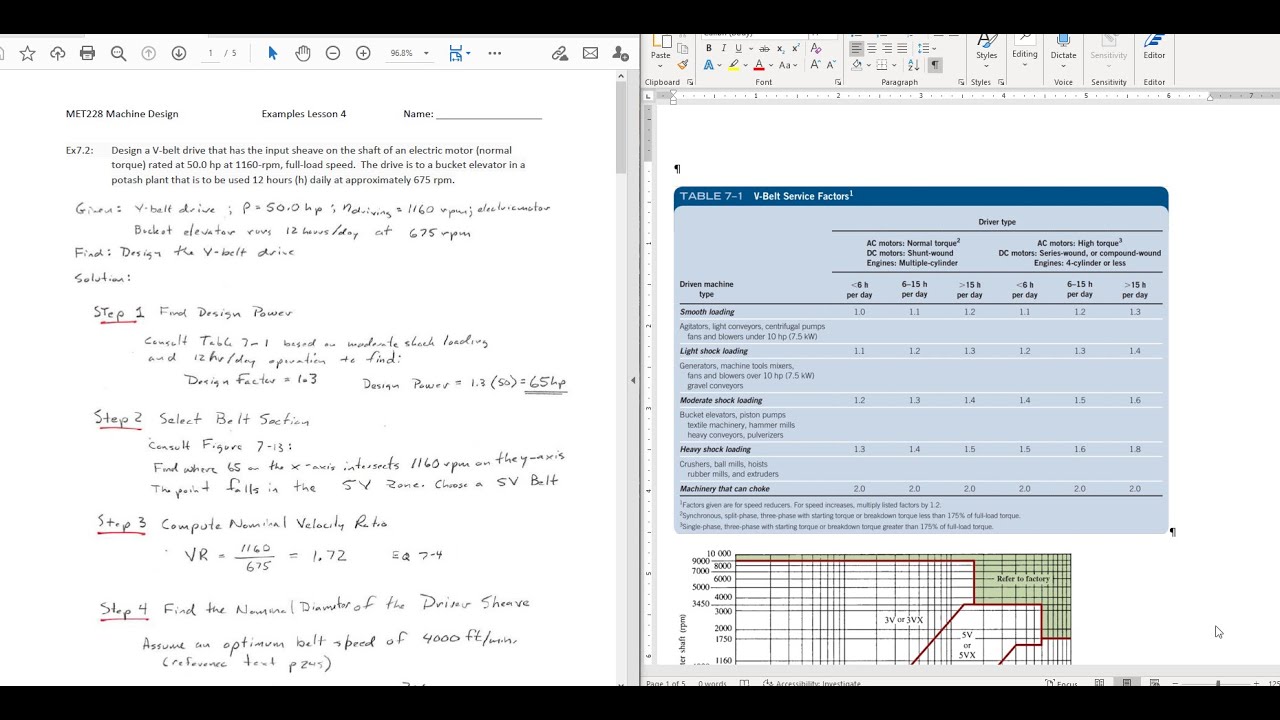 1 / 5
96.8%
MET228 Machine Design Examples Lesson 4 Name: ____________________
Ex7.2: Design a V-belt drive that has the input sheave on the shaft of an electric motor (normal
torque) rated at 50.0 hp at 1160-rpm, full-load speed. The drive is to a bucket elevator in a
potash plant that is to be used 12 hours (h) daily at approximately 675 rpm.
Given: V-belt drive ; P = 50.0 hp ; n driving = 1160 rpm; electric motor
Bucket elevator runs 12 hours/day at 675 rpm
Find: Design the V-belt drive
Solution:
Step 1 Find Design Power
Consult Table 7-1 based on moderate shock loading
and 12 hr/day operation to find:
Design Factor = 1.3 Design Power = 1.3 (50) = 65 hp
Step 2 Select Belt Section
Consult Figure 7-13:
Find where 65 on the x-axis intersects 1160 rpm on the y-axis
The point falls in the 5V Zone. Choose a 5V Belt
Step 3 Compute Nominal Velocity Ratio
VR = 1160 / 675 = 1.72 EQ 7-4
Step 4 Find the Nominal Diameter of the Driver Sheave
Assume an optimum belt speed of 4000 ft/min.
(reference text p 245)
Paste
B I U ab x₂ x²
A A Aa A A
Styles
Editing
Dictate
Sensitivity
Editor
Clipboard
Font
Paragraph
Styles
Voice
Sensitivity
Editor
1 2 3 4 5 6 7
¶
TABLE 7-1 V-Belt Service Factors¹
Driver type
AC motors: Normal torque² AC motors: High torque³
DC motors: Shunt-wound DC motors: Series-wound, or compound-wound
Engines: Multiple-cylinder Engines: 4-cylinder or less
Driven machine <6 h 6–15 h >15 h <6 h 6–15 h >15 h
type per day per day per day per day per day per day
Smooth loading 1.0 1.1 1.2 1.1 1.2 1.3
Agitators, light conveyors, centrifugal pumps
fans and blowers under 10 hp (7.5 kW)
Light shock loading 1.1 1.2 1.3 1.2 1.3 1.4
Generators, machine tools mixers,
fans and blowers over 10 hp (7.5 kW)
gravel conveyors
Moderate shock loading 1.2 1.3 1.4 1.4 1.5 1.6
Bucket elevators, piston pumps
textile machinery, hammer mills
heavy conveyors, pulverizers
Heavy shock loading 1.3 1.4 1.5 1.5 1.6 1.8
Crushers, ball mills, hoists
rubber mills, and extruders
Machinery that can choke 2.0 2.0 2.0 2.0 2.0 2.0
¹Factors given are for speed reducers. For speed increases, multiply listed factors by 1.2.
²Synchronous, split-phase, three-phase with starting torque or breakdown torque less than 175% of full-load torque.
³Single-phase, three-phase with starting torque or breakdown torque greater than 175% of full-load torque.
¶
10 000
9000
8000
7000
6000
5000
4000
3450
3000
2000
1750
1160
Refer to factory
3V or 3VX
5V
or
5VX
shaft (rpm)
Page 1 of 5 0 words Accessibility: Investigate Focus